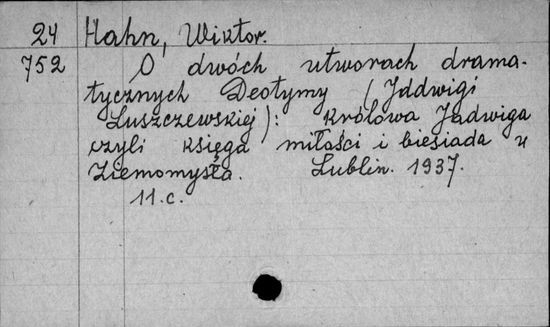 24 Hahn, Wiktor.
752 O dwóch utworach drama-
tycznych Deotymy (Jddwigi
Łuszczewskiej): Królowa Jadwiga
czyli księga miłości i biesiada u
Ziemomysła. Lublin. 1937.
11.c.